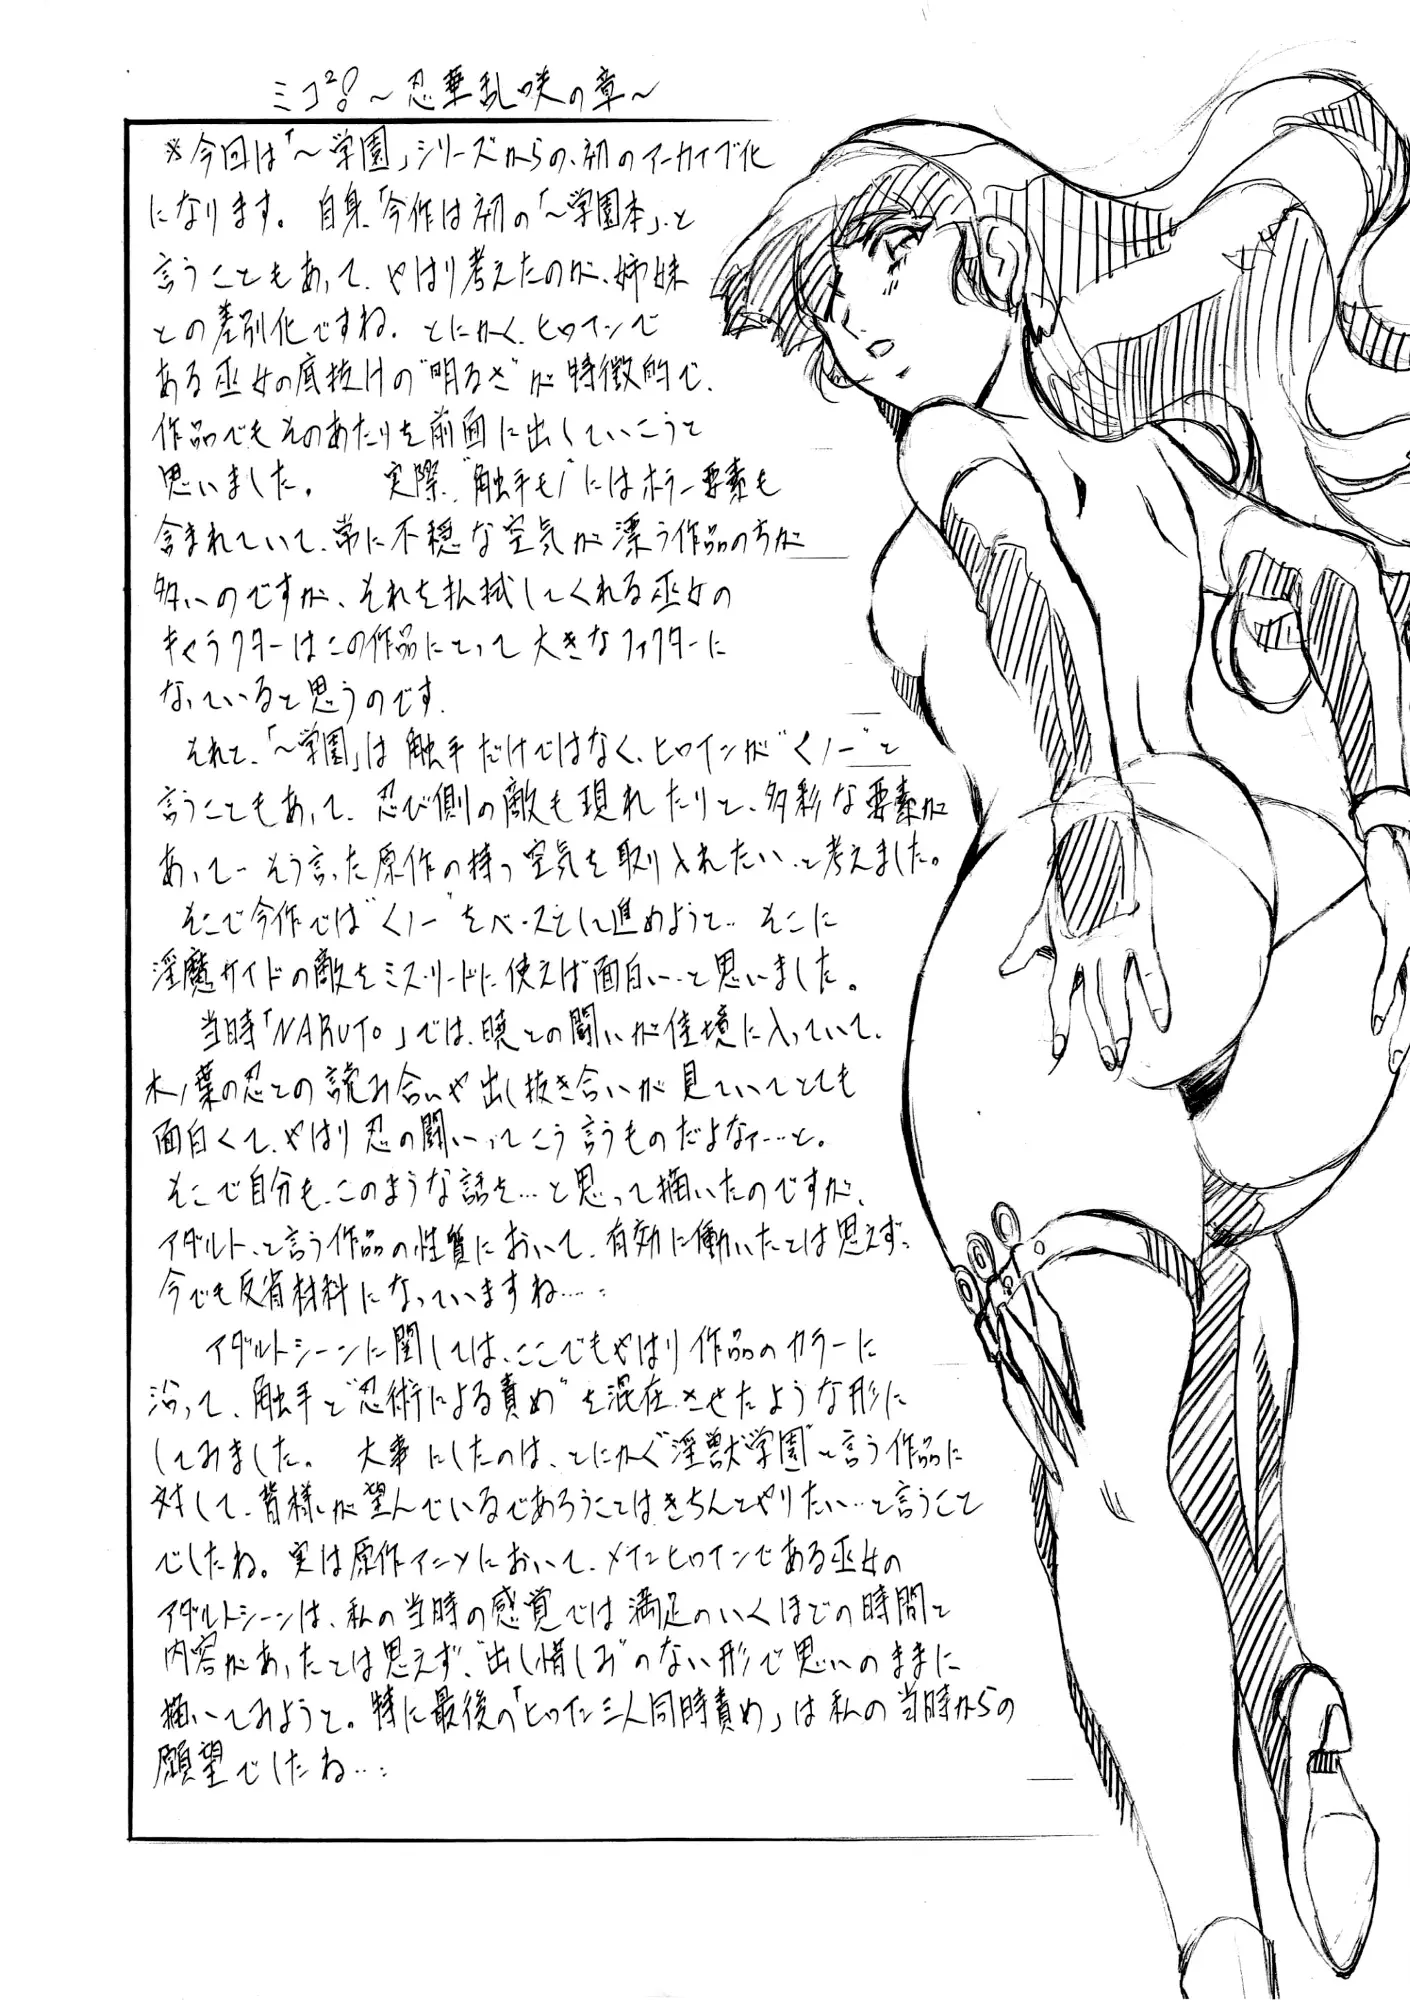 ミコ²!～忍華乱咲の章～
※今回は「～学園」シリーズからの、初のアーカイブ化
になります。 自身、「今作は初の「～学園本」、と
言うこともあって、やはり考えたのが、姉妹
との差別化ですね. とにかく、ヒロインで
ある巫女の底抜けの"明るさ"が特徴的で、
作品でもそのあたりを前面に出していこうと
思いました。 実際、"触手モノ"にはホラー要素も
含まれていて、常に不穏な空気が漂う作品のちが
多いのですが、それを払拭してくれる巫女の
キャラクターはこの作品にとって大きなファクターに
なっていると思うのです.
それと、「～学園」は触手だけではなく、ヒロインが"くノ一"と
言うこともあって、忍び側の敵も現れたりと、多彩な要素が
あって‥そう言った原作の持つ空気を取り入れたい‥と考えました。
そこで今作では"くノ一"をベースとして進めようと‥そこに
淫魔サイドの敵をミスリードに使えば面白い‥と思いました。
当時「NARUTO」では、暁との闘いが佳境に入っていて、
木ノ葉の忍との読み合いや出し抜き合いが見ていてとても
面白くて、やはり忍の闘いってこう言うものだよなァ…と。
そこで自分も、このような話を…と思って描いたのですが、
アダルト、と言う作品の性質において、有効に働いたとは思えず、
今でも反省材料になっていますね…:
アダルトシーンに関しては、ここでもやはり作品のカラーに
沿って、触手と"忍術による責め"を混在させたような形に
してみました。 大事にしたのは、とにかく"淫獣学園"と言う作品に
対して、皆様が望んでいるであろうことはきちんとやりたい‥と言うこと
でしたね。実は原作アニメにおいて、メインヒロインである巫女の
アダルトシーンは、私の当時の感覚では満足のいくほどの時間と
内容があったとは思えず、"出し惜しみ"のない形で思いのままに
描いてみようと。特に最後の「ヒロイン三人同時責め」は私の当時からの
願望でしたね…: